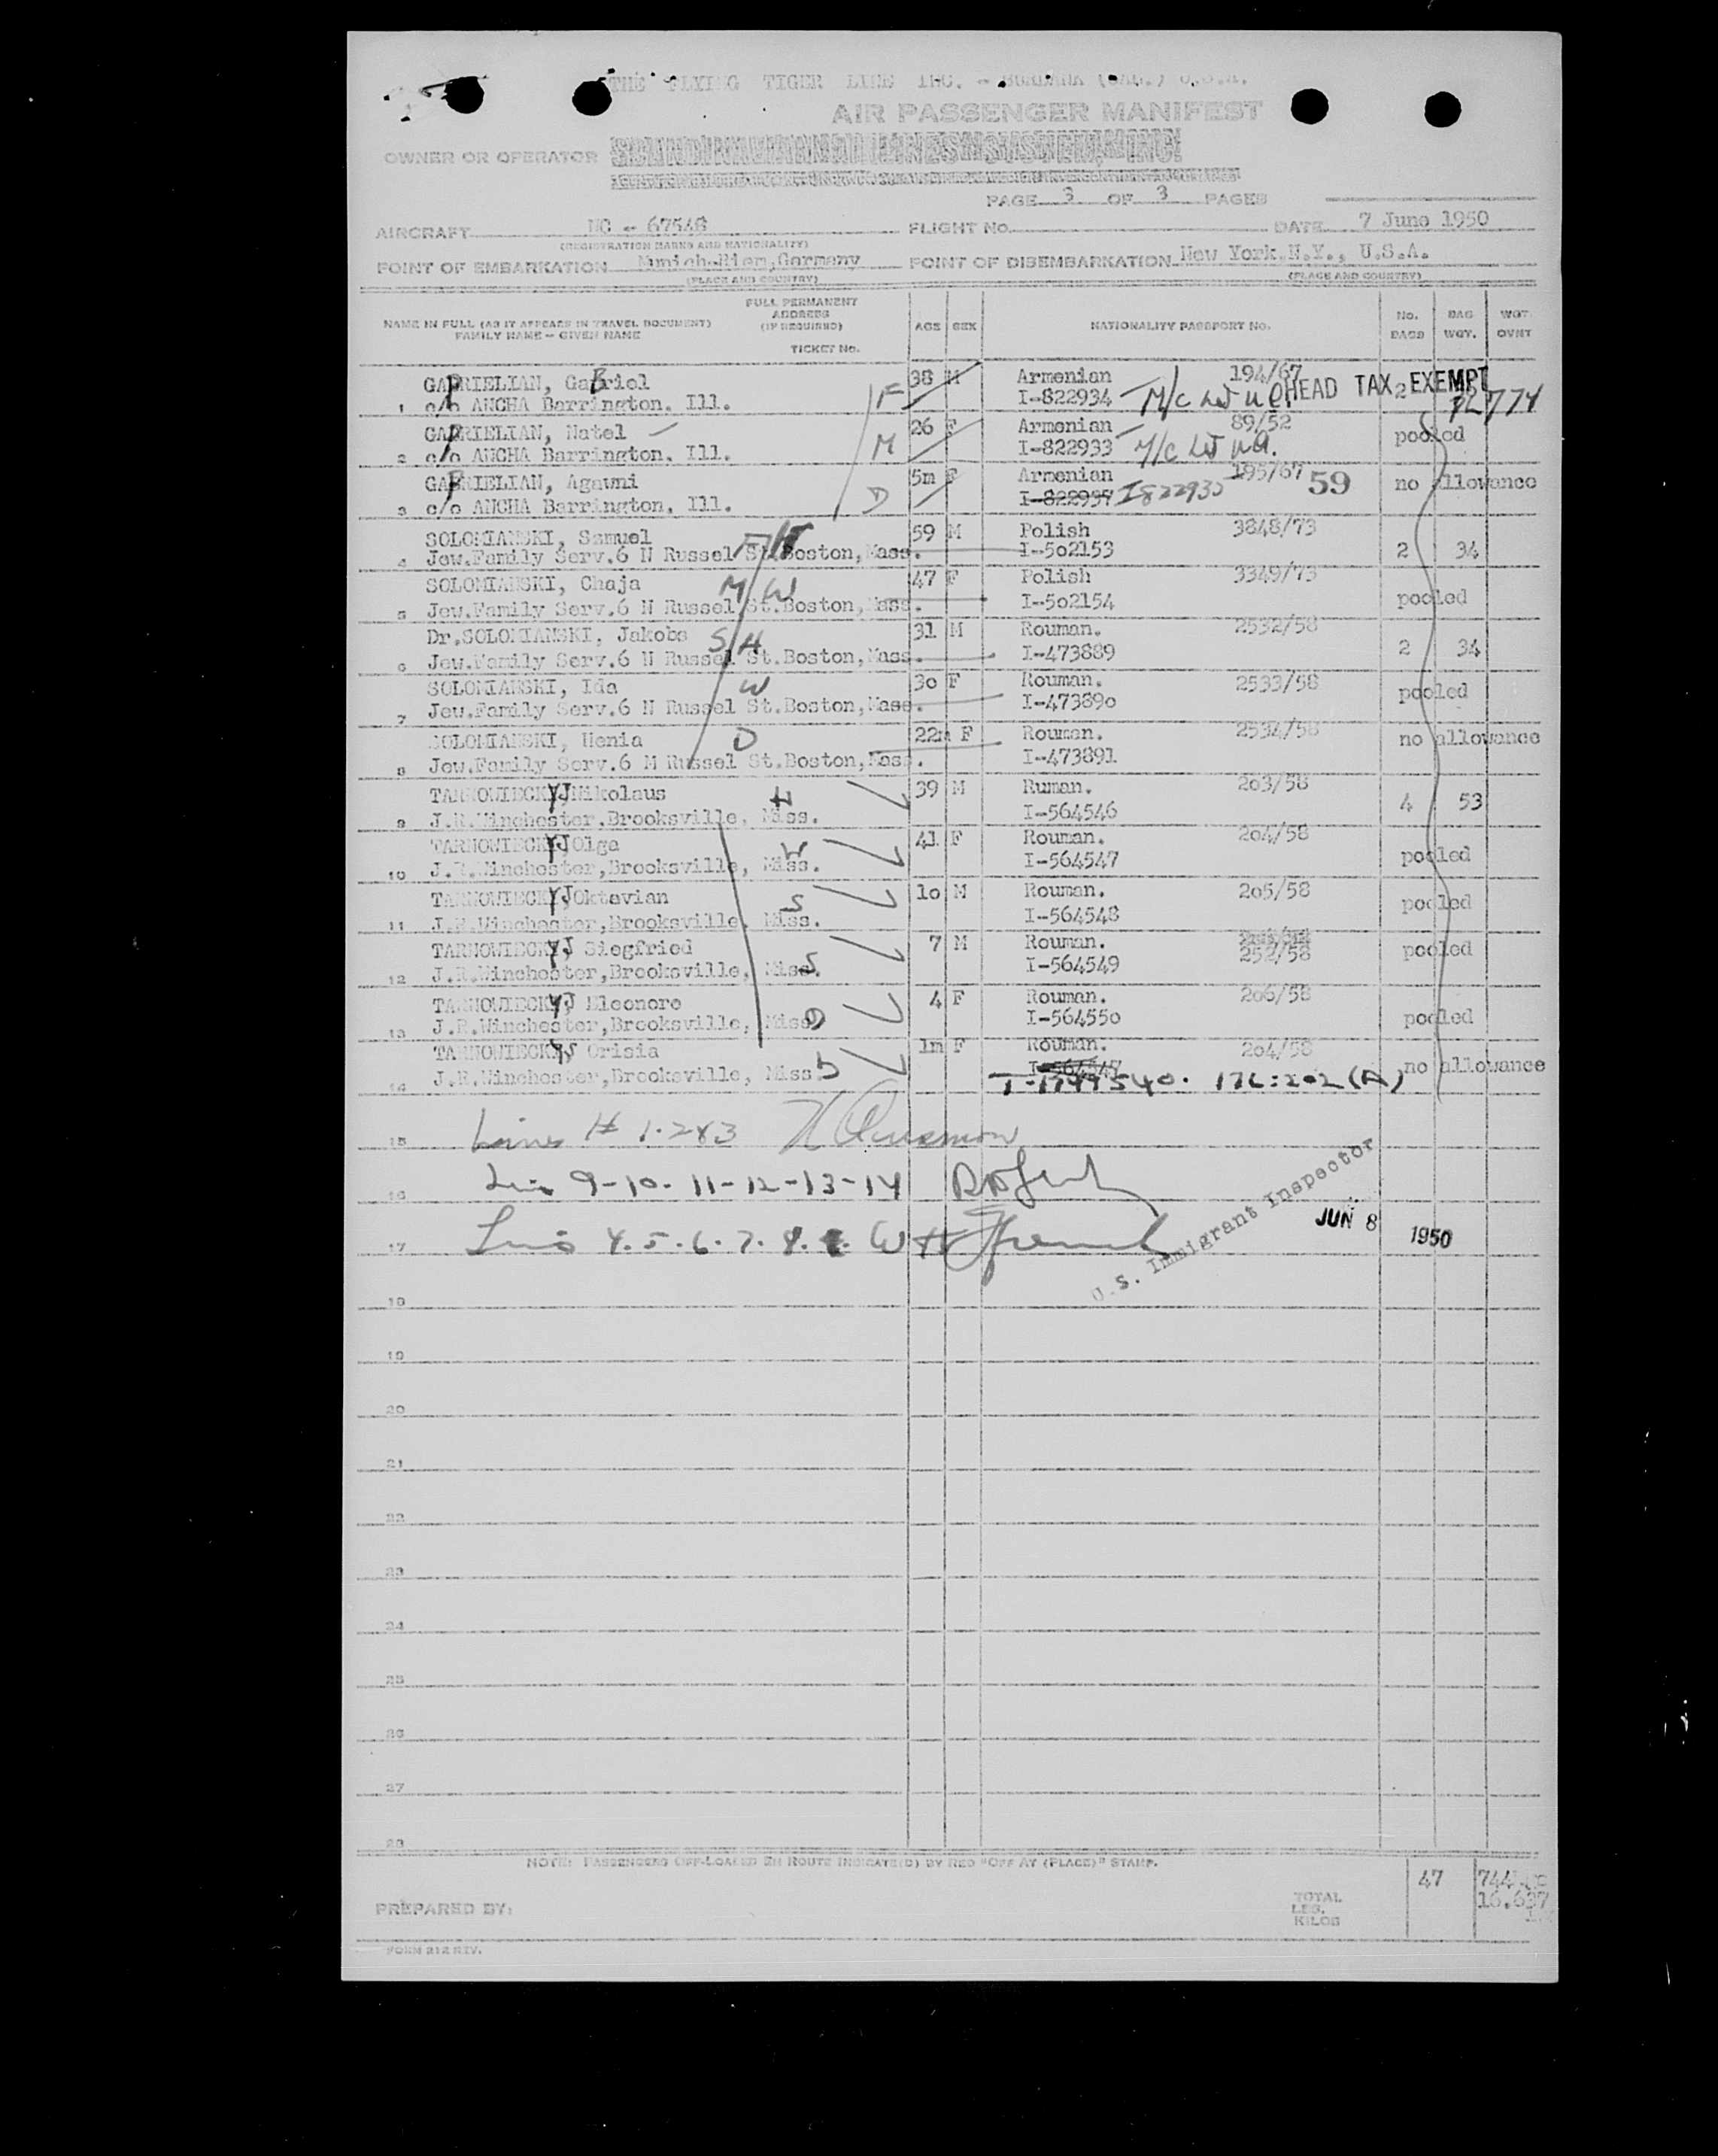 THE FLYING TIGER LINE INC. - BURBANK (CAL.) U.S.A.
AIR PASSENGER MANIFEST
OWNER OR OPERATOR
PAGE 3 OF 3 PAGES
AIRCRAFT NC - 67548 FLIGHT No. DATE 7 June 1950
(REGISTRATION MARKS AND NATIONALITY)
POINT OF EMBARKATION Munich-Riem, Germany POINT OF DISEMBARKATION New York N.Y., U.S.A.
(PLACE AND COUNTRY) (PLACE AND COUNTRY)
NAME IN FULL (AS IT APPEARS IN TRAVEL DOCUMENT) FAMILY NAME - GIVEN NAME FULL PERMANENT ADDRESS (IF REQUIRED) TICKET No. AGE SEX NATIONALITY PASSPORT No. No. BAGS BAG WGT. WGT. OVNT
GABRIELIAN, Gabriel 38 M Armenian 194/67
1 c/o ANCHA Barrington, Ill. F I-822934 M/c HEAD TAX EXEMPT 2 72
GABRIELIAN, Natel 26 F Armenian 89/52 pooled
2 c/o ANCHA Barrington, Ill. M I-822933 M/c
GABRIELIAN, Agawni 5m F Armenian 195/67 59 no allowance
3 c/o ANCHA Barrington, Ill. D I-822937 I822935
SOLOMIANSKI, Samuel F/H 59 M Polish 3848/73
4 Jew.Family Serv.6 N Russel St.Boston, Mass. I-502153 2 34
SOLOMIANSKI, Chaja M/W 47 F Polish 3349/73
5 Jew.Family Serv.6 N Russel St.Boston, Mass. I-502154 pooled
Dr.SOLOMIANSKI, Jakobs S/H 31 M Rouman. 2532/58
6 Jew.Family Serv.6 N Russel St.Boston, Mass. I-473889 2 34
SOLOMIANSKI, Ida W 30 F Rouman. 2533/58 pooled
7 Jew.Family Serv.6 N Russel St.Boston, Mass. I-473890
SOLOMIANSKI, Henia D 22m F Rouman. 2534/58 no allowance
8 Jew.Family Serv.6 N Russel St.Boston, Mass. I-473891
TARNOWIECKYJ Nikolaus H 39 M Ruman. 203/58 4 53
9 J.R.Winchester,Brooksville, Miss. I-564546
TARNOWIECKYJ Olga W 41 F Rouman. 204/58 pooled
10 J.R.Winchester,Brooksville, Miss. I-564547
TARNOWIECKYJ Oktavian S 10 M Rouman. 205/58 pooled
11 J.R.Winchester,Brooksville, Miss. I-564548
TARNOWIECKYJ Siegfried S 7 M Rouman. 252/58 pooled
12 J.R.Winchester,Brooksville, Miss. I-564549
TARNOWIECKYJ Eleonore D 4 F Rouman. 206/58
13 J.R.Winchester,Brooksville, Miss. I-564550 pooled
TARNOWIECKYJ Orisia D 1m F Rouman. 204/58
14 J.R.Winchester,Brooksville, Miss I-564547 no allowance
I-1749540. 176:202(A)
15 Lines # 1-2&3
16 9-10-11-12-13-14
17 4.5.6.7.8. W H French
U.S. Immigrant Inspector
JUN 8 1950
19
20
21
22
23
24
25
26
27
28
NOTE: PASSENGERS OFF-LOADED EN ROUTE INDICATE(D) BY RED "OFF AT (PLACE)" STAMP.
47 744
PREPARED BY: TOTAL LBS. KILOS 16.637
FORM 212 REV.